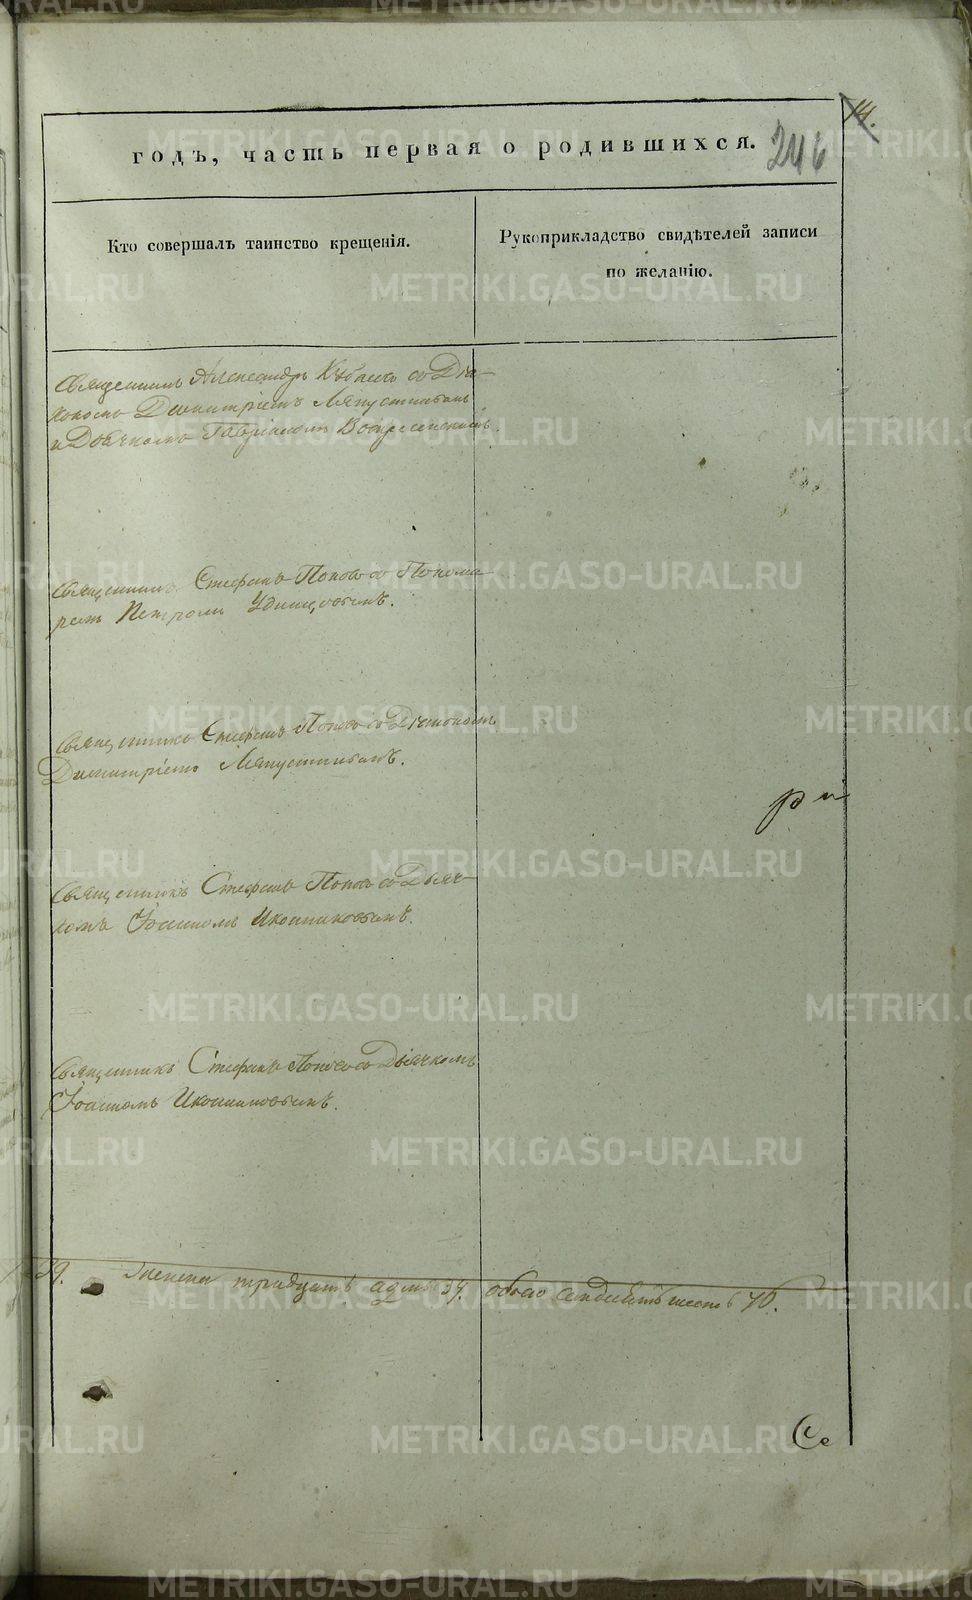 14.
246
годъ, часть первая о родившихся.
Кто совершалъ таинство крещенія.
Рукоприкладство свидѣтелей записи
по желанію.
Священникъ Александръ со Діа-
кономъ Димитріемъ Ляпустинымъ
и Дьячкомъ Гавріиломъ Воскресенскимъ.
Священникъ Стефанъ Поповъ со Понома-
ремъ Петромъ Удинцовымъ.
Священникъ Стефанъ Поповъ со Діакономъ
Димитріемъ Ляпустинымъ.
Священникъ Стефанъ Поповъ со Дьяч-
комъ Іоанномъ Иконниковымъ.
Священникъ Стефанъ Поповъ со Дьячкомъ
Іоанномъ Иконниковымъ.
39. женска тридцать обоего семдесятъ шесть 76.
METRIKI.GASO-URAL.RU